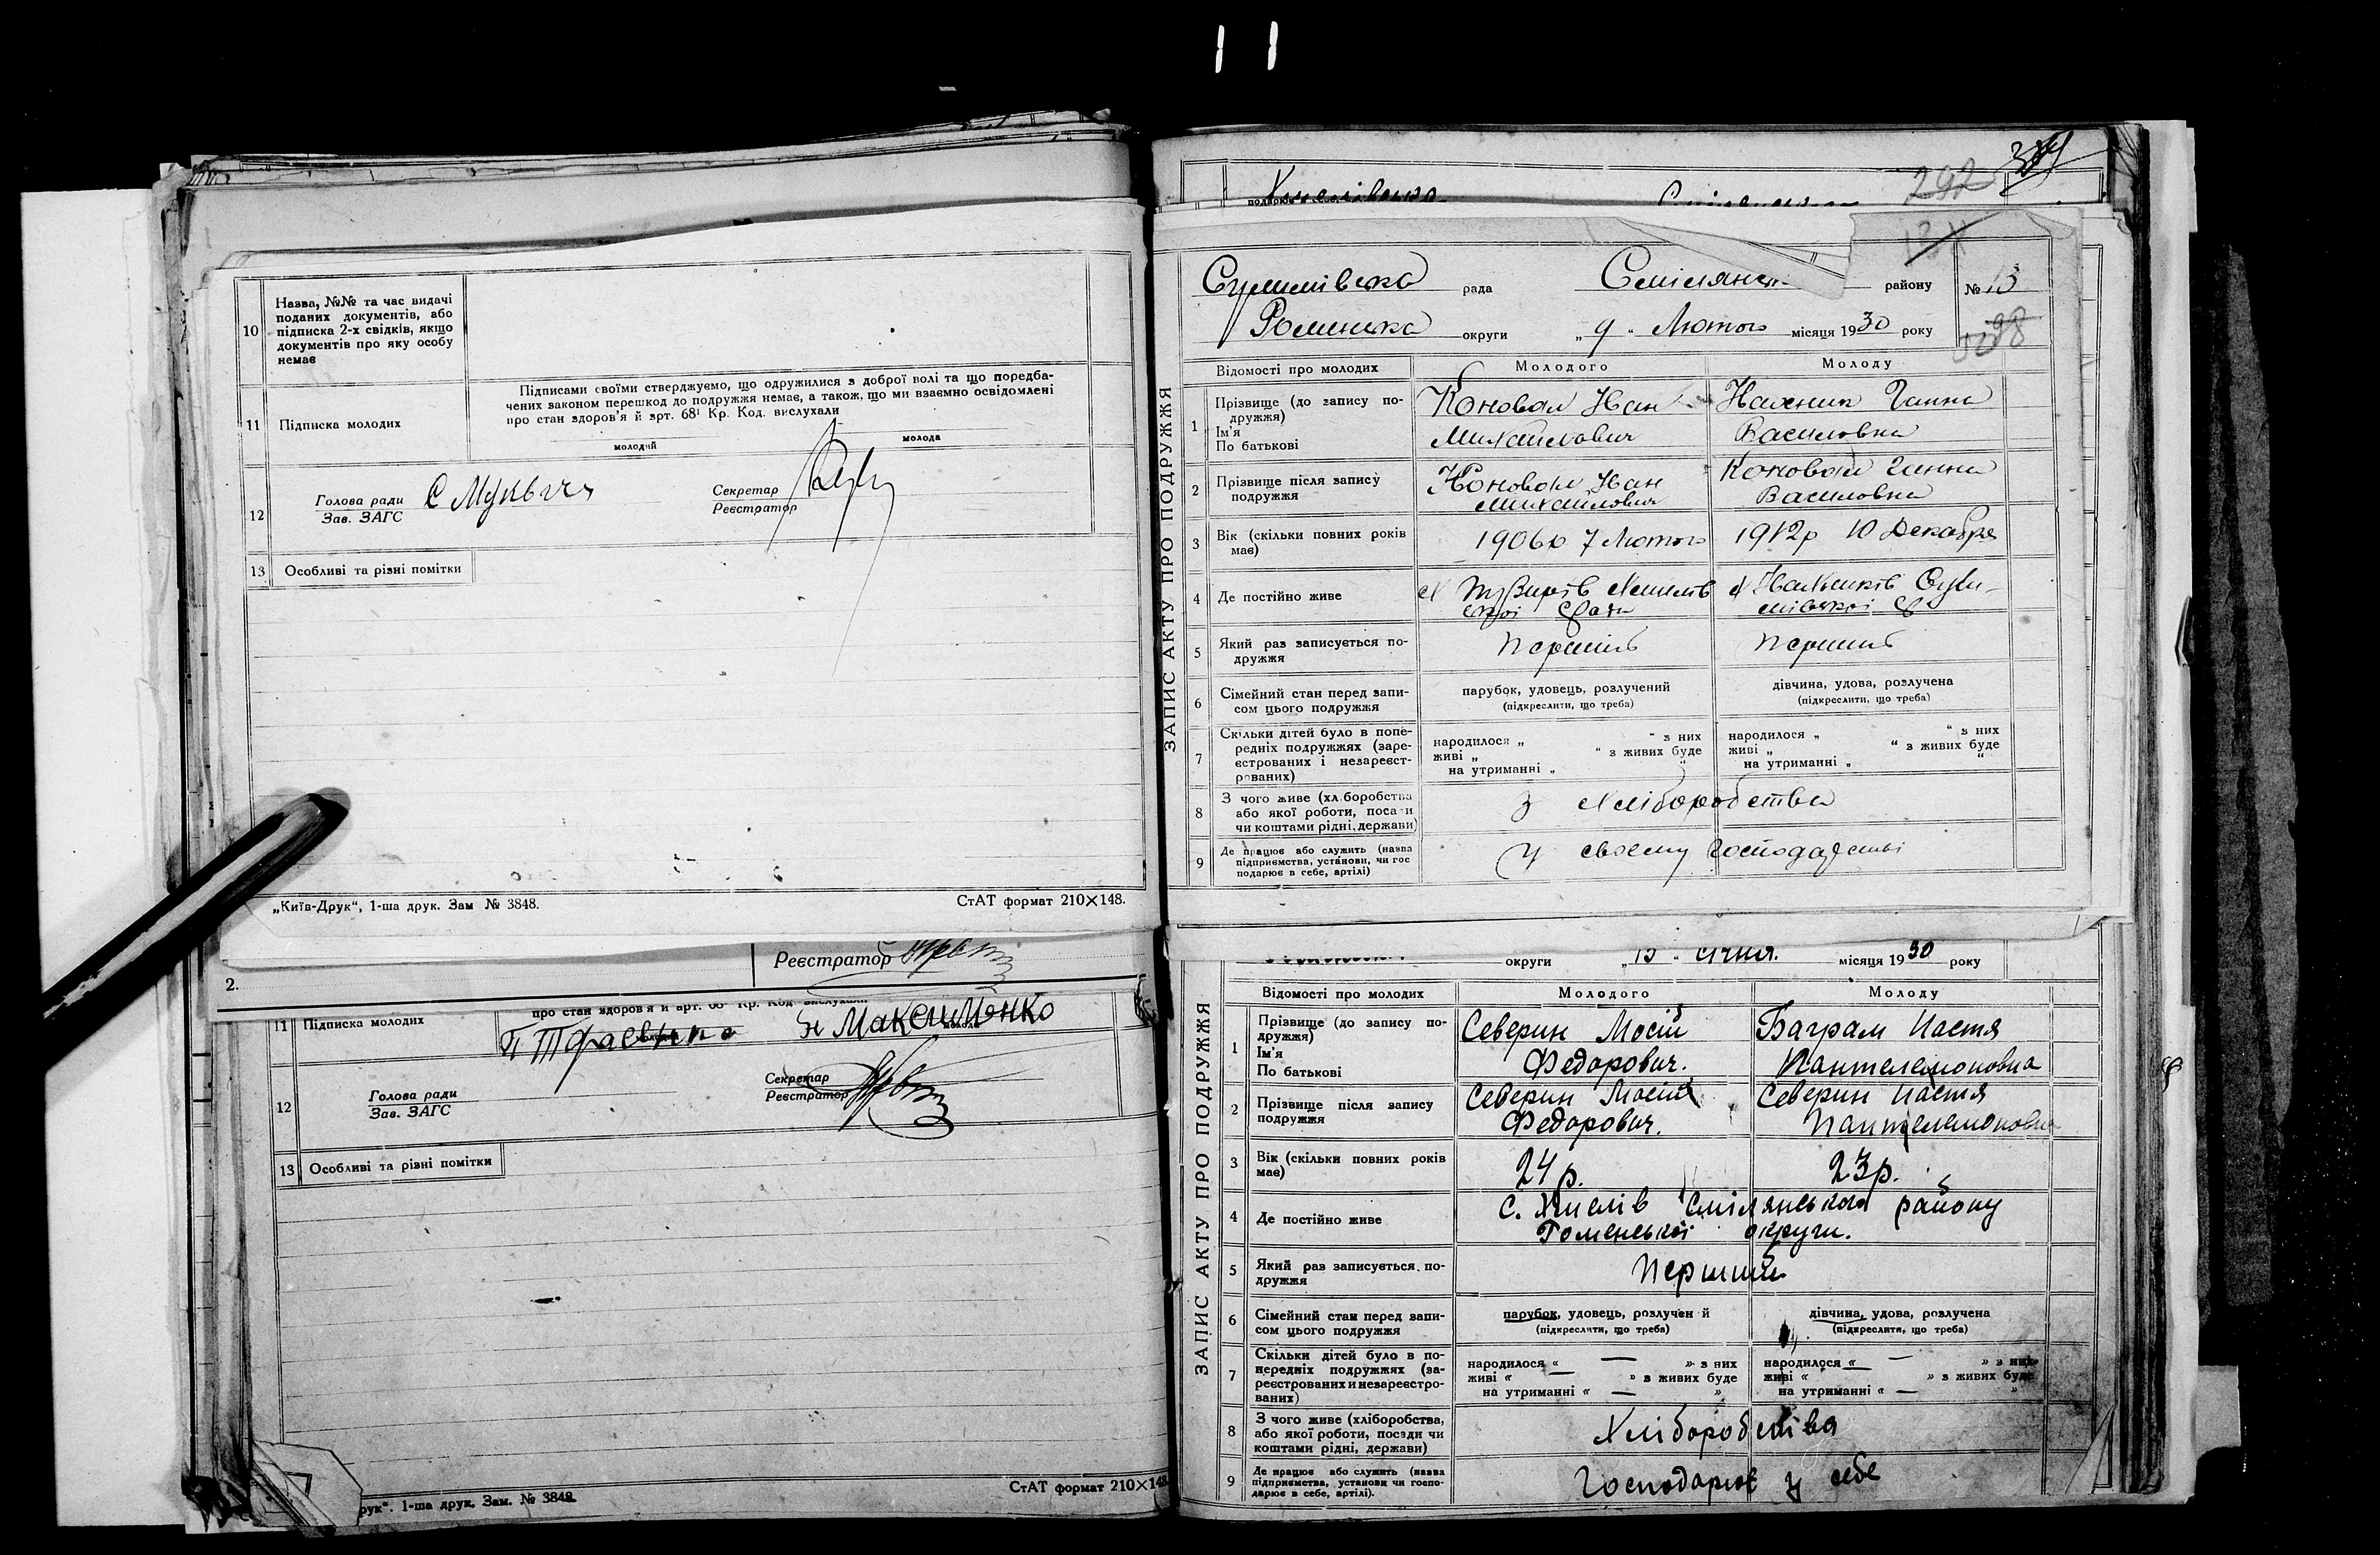 10
Назва, №№ та час видачі
поданих документів, або
підписка 2-х свідків, якщо
документів про яку особу
немає
11
Підписка молодих
Підписами своїми стверджуємо, що одружилися з доброї волі та що поредба-
чених законом перешкод до подружжя немає, а також, що ми взаємно освідомлені
про стан здоров'я й арт. 68¹ Кр. Код. вислухали
молодий
молода
12
Голова ради
Зав. ЗАГС
Секретар
Реєстратор
13
Особливі та різні помітки
„Київ-Друк“, 1-ша друк. Зам № 3848.
СтАТ формат 210×148.
Реєстратор
2.
про стан здоров'я й арт. 68¹ Кр. Код вислухали
11
Підписка молодих
Максименко
12
Голова ради
Зав. ЗАГС
Секретар
Реєстратор
13
Особливі та різні помітки
рук“. 1-ша друк. Зам. № 3848
СтАТ формат 210×148
292
рада
Смілянськ
району
№ 13
Роменська
округи
„ 9 “ Лютого місяця 1930 року
ЗАПИС АКТУ ПРО ПОДРУЖЖЯ
Відомості про молодих
Молодого
Молоду
1
Прізвище (до запису по-
дружжя)
Ім'я
По батькові
Коновал Іван
Михайлович
Ганна
Василовна
2
Прізвище після запису
подружжя
Коновал Іван
Михайлович
Коновал Ганна
Василовна
3
Вік (скільки повних років
має)
1906р 7 Лютого
1912р 10 Декабря
4
Де постійно живе
5
Який раз записується по-
дружжя
6
Сімейний стан перед запи-
сом цього подружжя
парубок, удовець, розлучений
(підкреслити, що треба)
дівчина, удова, розлучена
(підкреслити, що треба)
7
Скільки дітей було в попе-
редніх подружжях (заре-
єстрованих і незареєст-
рованих)
народилося „ “ з них
живі „ “ з живих буде
на утриманні „ “
народилося „ “ з них
живі „ “ з живих буде
на утриманні „ “
8
З чого живе (хліборобства
або якої роботи, посади
чи коштами рідні, держави)
з хліборобства
9
Де працює або служить (назва
підприємства, установи, чи гос
подарює в себе, артілі)
У своєму господарстві
округи
січня.
місяця 1930 року
ЗАПИС АКТУ ПРО ПОДРУЖЖЯ
Відомості про молодих
Молодого
Молоду
1
Прізвище (до запису по-
дружжя)
Ім'я
По батькові
Северин Мосій
Федорович.
Баграм Настя
Пантелемоновна
2
Прізвище після запису
подружжя
Северин Мосій
Федорович.
Северин Настя
Пантелемоновна
3
Вік (скільки повних років
має)
24 р.
23 р.
4
Де постійно живе
с. Хмелів Смілянського району
Роменської округи.
5
Який раз записується по-
дружжя
Перший
6
Сімейний стан перед запи-
сом цього подружжя
парубок, удовець, розлучен й
(підкреслити, що треба)
дівчина, удова, розлучена
(підкреслити, що треба)
7
Скільки дітей було в по-
передніх подружжях (за-
реєстрованих и незареєстро-
ваних)
народилося « — » з них
живі « — » з живих буде
на утриманні « — »
народилося « — » з них
живі « » з живих буде
на утриманні « — »
8
З чого живе (хліборобства,
або якої роботи, посади чи
коштами рідні, держави)
Хліборобства
9
Де працює або служить (назва
підприємства, установи чи госпо-
дарює в себе, артілі).
Господарює у себе